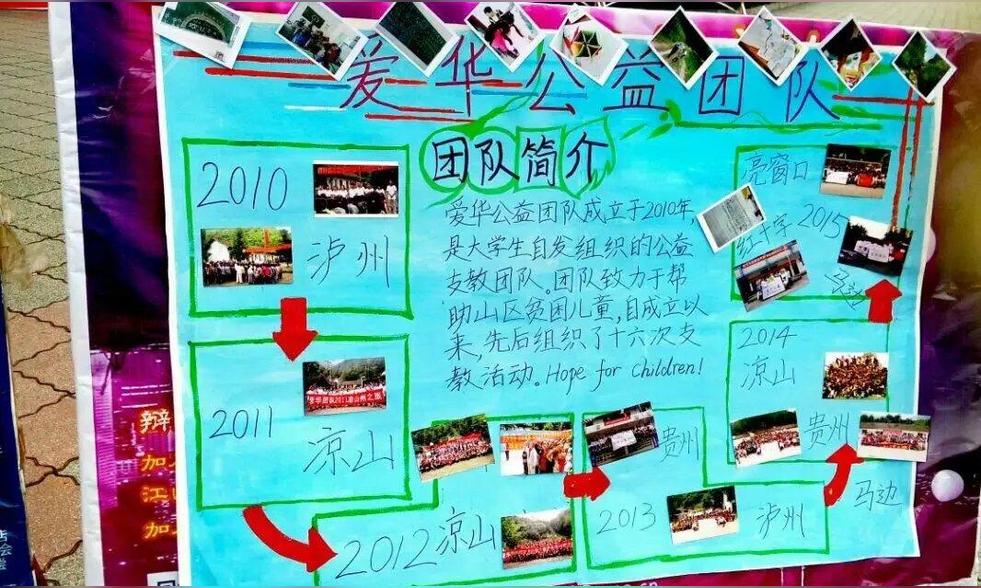 爱华公益团队
团队简介
爱华公益团队成立于2010年
是大学生自发组织的公益
支教团队。团队致力于帮
助山区贫困儿童,自成立以
来,先后组织了十六次支
教活动。Hope for Children!
2010
泸州
2011
凉山
2012 凉山
2013
贵州
泸州
2014
凉山
贵州
马边
亮窗口
红十字 2015
马边
辩
加
江
加